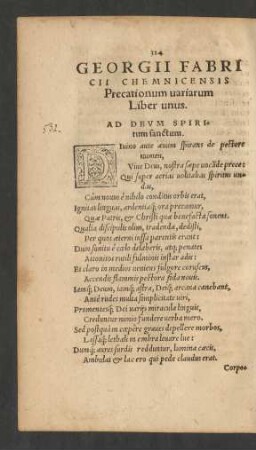 114
GEORGII FABRI
CII CHEMNICENSIS
Precationum uariarum
Liber unus.
532.
AD DEVM SPIRI-
tum sanctum.
Diuino ante auium spirans de pectore
numen,
Viue Deus, nostræ sæpe uocate preces:
Qui super aerias uolitabas spiritus un-
das,
Cùm nouus è nihilo conditus orbis erat,
Ignitas linguas, ardentiaq́; ora precamur,
Quæ Patris, & Christi quæ benefacta sonent.
Qualia discipulis olim, tradenda, dedisti,
Per quos æterni iussa parentis erant:
Dum sonitu è cœlo delaberis, atq; penates
Attonitos ruidi fulminis instar adis:
Et claro in medios ueniens fulgore corusem,
Accendis flammis pectora fida nouis.
Iamq́; Deum, iamq́; astra, Deiq́; arcana canebant,
Ante rudes multa simplicitate uiri,
Prementesq́; Dei uarijs miracula linguis,
Creduntur nimio fundere uerba mero.
Sed postquam cœpêre graues depellere morbos,
Lassaq́; lethali membra leuare lue:
Dumq́; aures surdis redduntur, lumina cæcis,
Ambulat & lacero qui pede claudus erat.
Corpo-